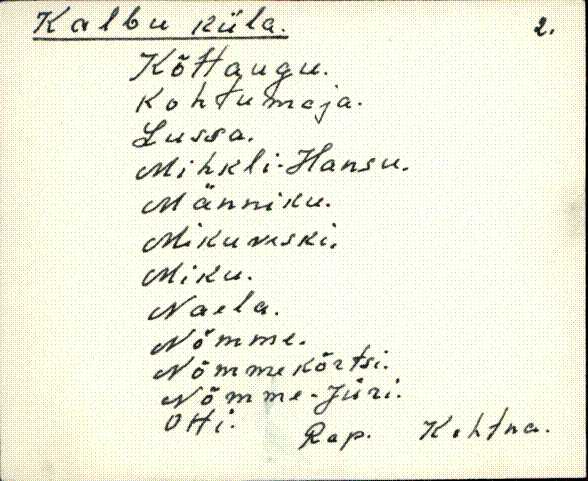 Kalbu küla. 2.
Kõttaugu.
Kohtumaja.
Lussa.
Mihkli-Hansu.
Männiku.
Mikuveski.
Miku.
Naela.
Nõmme.
Nõmmekõrtsi.
Nõmme-Jüri.
Otti.
Rap. Kohtna.